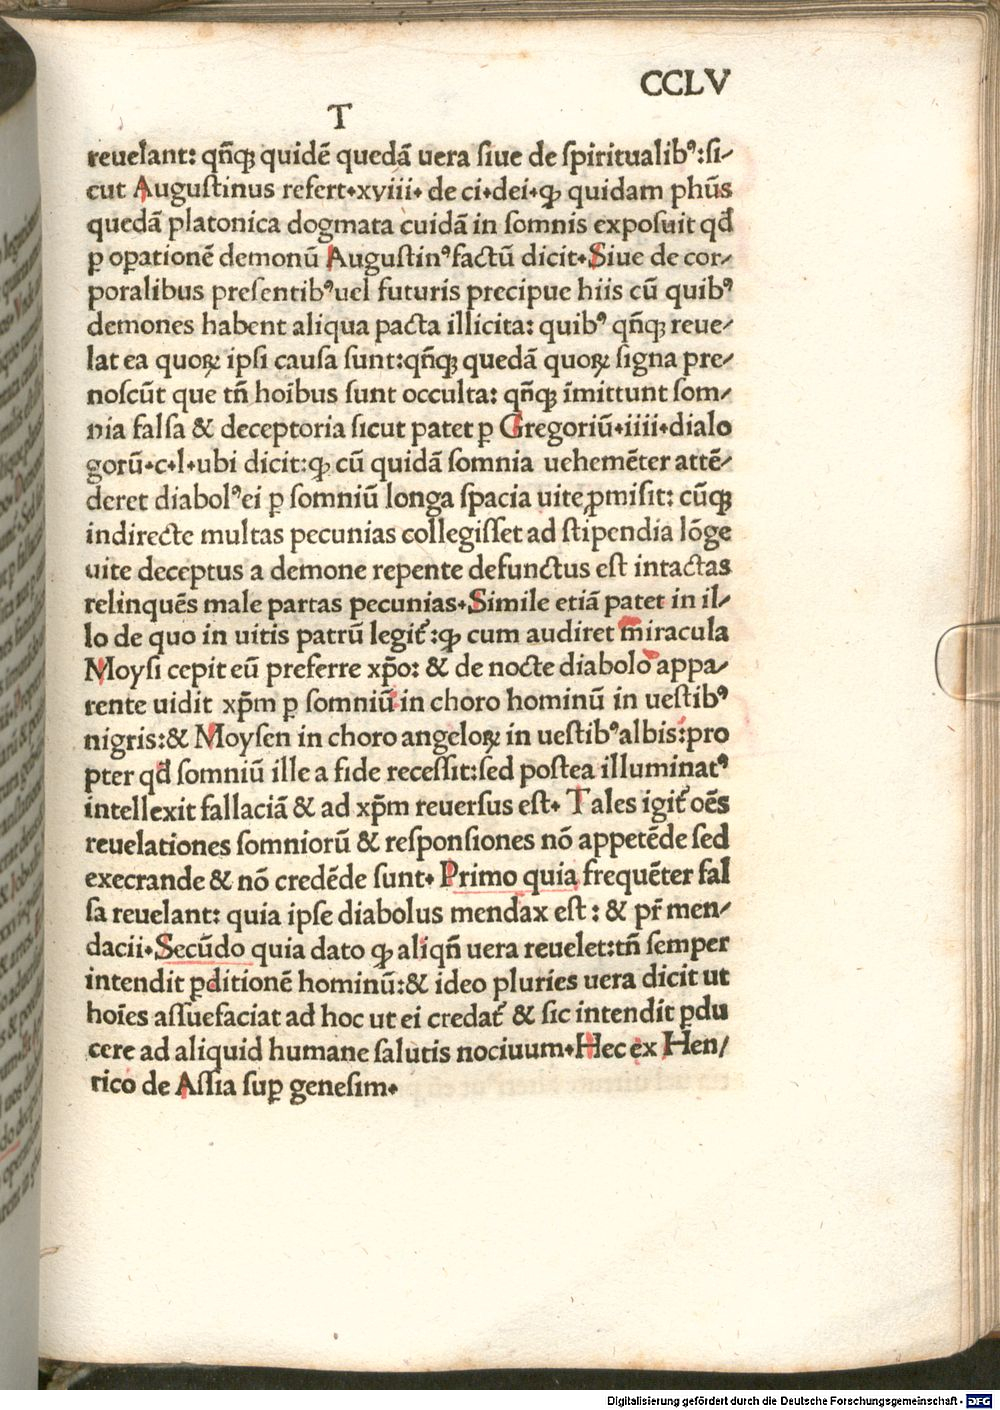 CCLV
T
reuelant: qñqꝫ quidē quedā uera ſiue de ſpiritualibꝰ:ſi⸗
cut Auguſtinus refert•xviii• de ci•dei•ꝙ quidam phūs
quedā platonica dogmata cuidā in ſomnis expoſuit qđ
ꝑ oꝑationē demonū Auguſtinꝰfactū dicit•Siue de cor⸗
poralibus preſentibꝰuel futuris precipue hiis cū quibꝰ
demones habent aliqua pacta illicita: quibꝰ qñqꝫ reue⸗
lat ea quoꝝ ipſi cauſa ſunt:qñqꝫ quedā quoꝝ ſigna pre⸗
noſcūt que tñ hoībus ſunt occulta: qñqꝫ īmittunt ſom⸗
nia falſa & deceptoria ſicut patet ꝑ Gregoriū•iiii•dialo
gorū•c•l•ubi dicit:ꝙ cū quidā ſomnia uehemēter attē⸗
deret diabolꝰei ꝑ ſomniū longa ſpacia uite ꝓmiſit: cūqꝫ
indirecte multas pecunias collegiſſet ad ſtipendia lōge
uite deceptus a demone repente defunctus eſt intactas
relinquēs male partas pecunias•Simile etiā patet in il⸗
lo de quo in uitis patrū legit᷑:ꝙ cum audiret miracula
Moyſi cepit eū preferre xp̄o: & de nocte diabolo appa⸗
rente uidit xp̄m ꝑ ſomniū in choro hominū in ueſtibꝰ
nigris:& Moyſen in choro angeloꝝ in ueſtibꝰalbis:pro
pter qđ ſomniū ille a fide receſſit:ſed poſtea illuminatꝰ
intellexit fallaciā & ad xp̄m reuerſus eſt• Tales igit᷑ oēs
reuelationes ſomniorū & reſponſiones nō appetēde ſed
execrande & nō credēde ſunt• Primo quia frequēter fal
ſa reuelant: quia ipſe diabolus mendax eſt: & pr̄ men⸗
dacii•Secūdo quia dato ꝙ aliqñ uera reuelet:tñ ſemper
intendit ꝑditionē hominū:& ideo pluries uera dicit ut
hoīes aſſuefaciat ad hoc ut ei credat᷑ & ſic intendit ꝑdu
cere ad aliquid humane ſalutis nociuum•Hec ex Hen/
rico de Aſſia suꝑ geneſim•
Digitalisierung gefördert durch die Deutsche Forschungsgemeinschaft - DFG